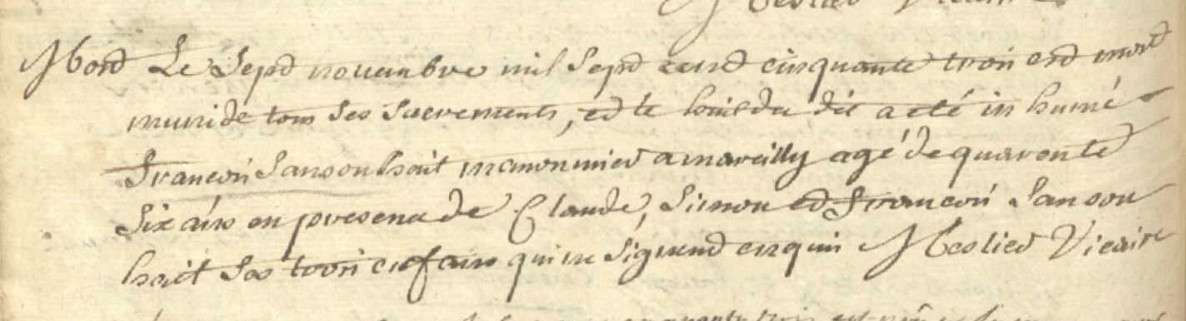 Meslier Vicaire
Mord Le Sepd novembre mil Sepd cend cinquante troi end mord
muni de tous Ses Sacrements, ed le huit du dit a eté in humé
Francoi Sansouhait manouvrier a mareilly agé de quarente
Six ans en presence de Claude, Simon ed Francoi Sansou
hait Ses troi enfans qui ne Signend enquis Meslier Vicaire